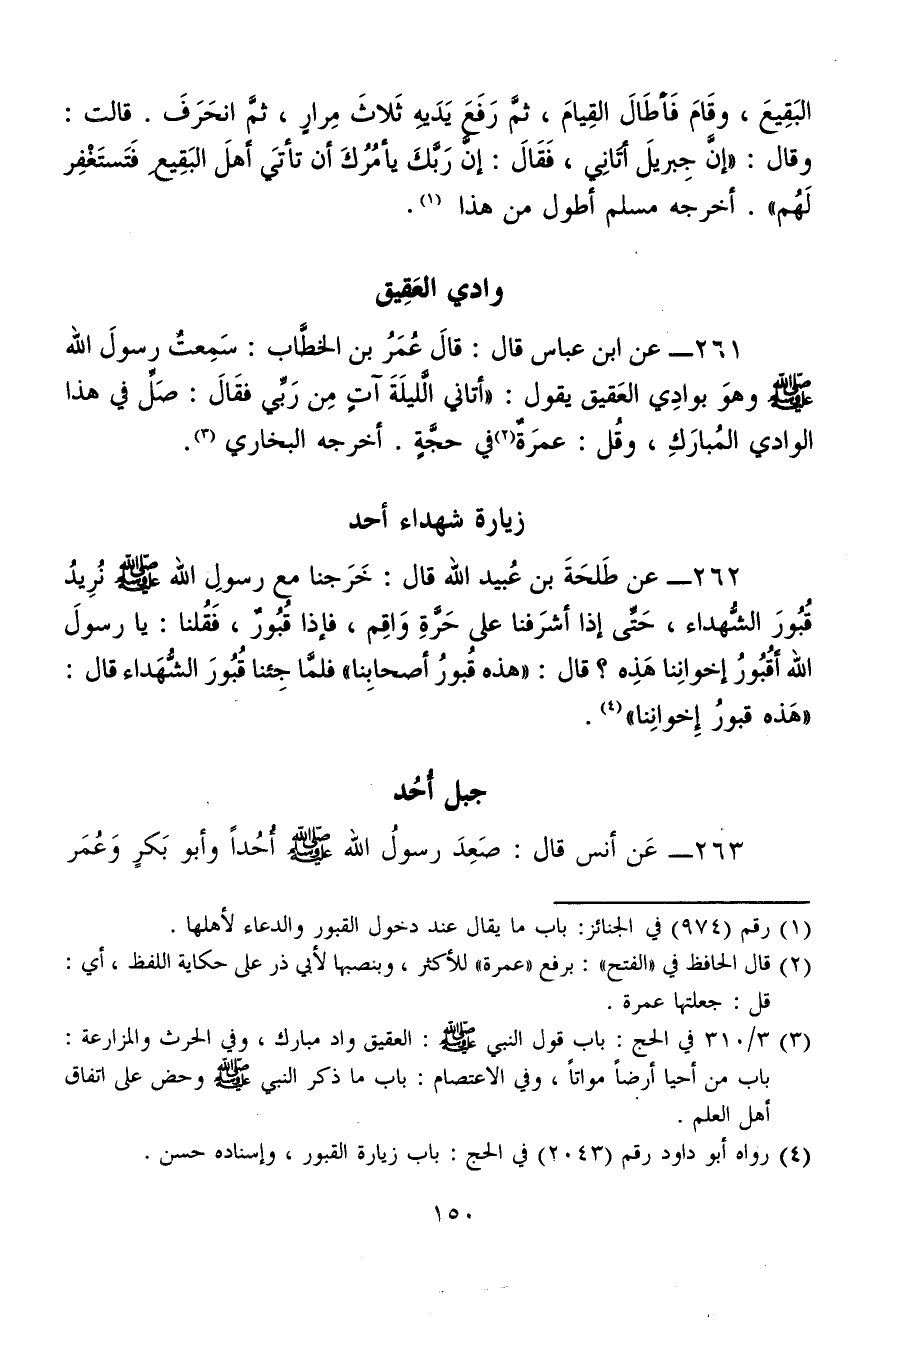 البَقِيعَ ، وقَامَ فَأطَالَ القِيامَ ، ثمَّ رَفَعَ يَدَيهِ ثَلاثَ مِرارٍ ، ثمَّ انحَرَفَ . قالت :
وقال : «إنَّ جِبريلَ أتَانِي ، فَقَالَ : إنَّ رَبَّكَ يأمُرُكَ أن تأتيَ أهلَ البَقِيعِ فَتَستَغْفِر
لَهُم» . أخرجه مسلم أطول من هذا (١) .
وادي العَقِيق
٢٦١ــ عن ابن عباس قال : قالَ عُمَرُ بن الخطَّاب : سَمِعتُ رسولَ الله
ﷺ وهوَ بوادِي العَقيق يقول : «أتاني الَّليلَةَ آتٍ مِن رَبِّي فقَالَ : صَلِّ في هذا
الوادي المُبارَكِ ، وقُل : عمرَةٌ(٢)في حجَّةٍ . أخرجه البخاري (٣).
زيارة شهداء أحد
٢٦٢ــ عن طَلحَةَ بن عُبيد الله قال : خَرَجنا مع رسولِ الله ﷺ نُريدُ
قُبُورَ الشُّهداء ، حَتَّى إذا أشرَفنا على حَرَّةِ وَاقِم ، فإذا قُبُورٌ ، فَقُلنا : يا رسولَ
الله أقُبُورُ إخوانِنا هَذِه ؟ قال : «هذه قُبورُ أصحابِنا» فلمَّا جِئنا قُبُورَ الشُّهَداء قال :
«هَذه قبورُ إخوانِنا»(٤) .
جبل أُحُد
٢٦٣ــ عَن أنس قال : صَعِدَ رسولُ الله ﷺ أُحُداً وأبو بَكرٍ وَعُمَر
(١) رقم (٩٧٤) في الجنائز: باب ما يقال عند دخول القبور والدعاء لأهلها .
(٢) قال الحافظ في «الفتح» : برفع «عمرة» للأكثر ، وبنصبها لأبي ذر على حكاية اللفظ ، أي :
قل : جعلتها عمرة .
(٣) ٣١٠/٣ في الحج : باب قول النبي ﷺ : العقيق واد مبارك ، وفي الحرث والمزارعة :
باب من أحيا أرضاً مواتاً ، وفي الاعتصام : باب ما ذكر النبي ﷺ وحض على اتفاق
أهل العلم .
(٤) رواه أبو داود رقم (٢٠٤٣) في الحج : باب زيارة القبور ، وإسناده حسن .
١٥٠